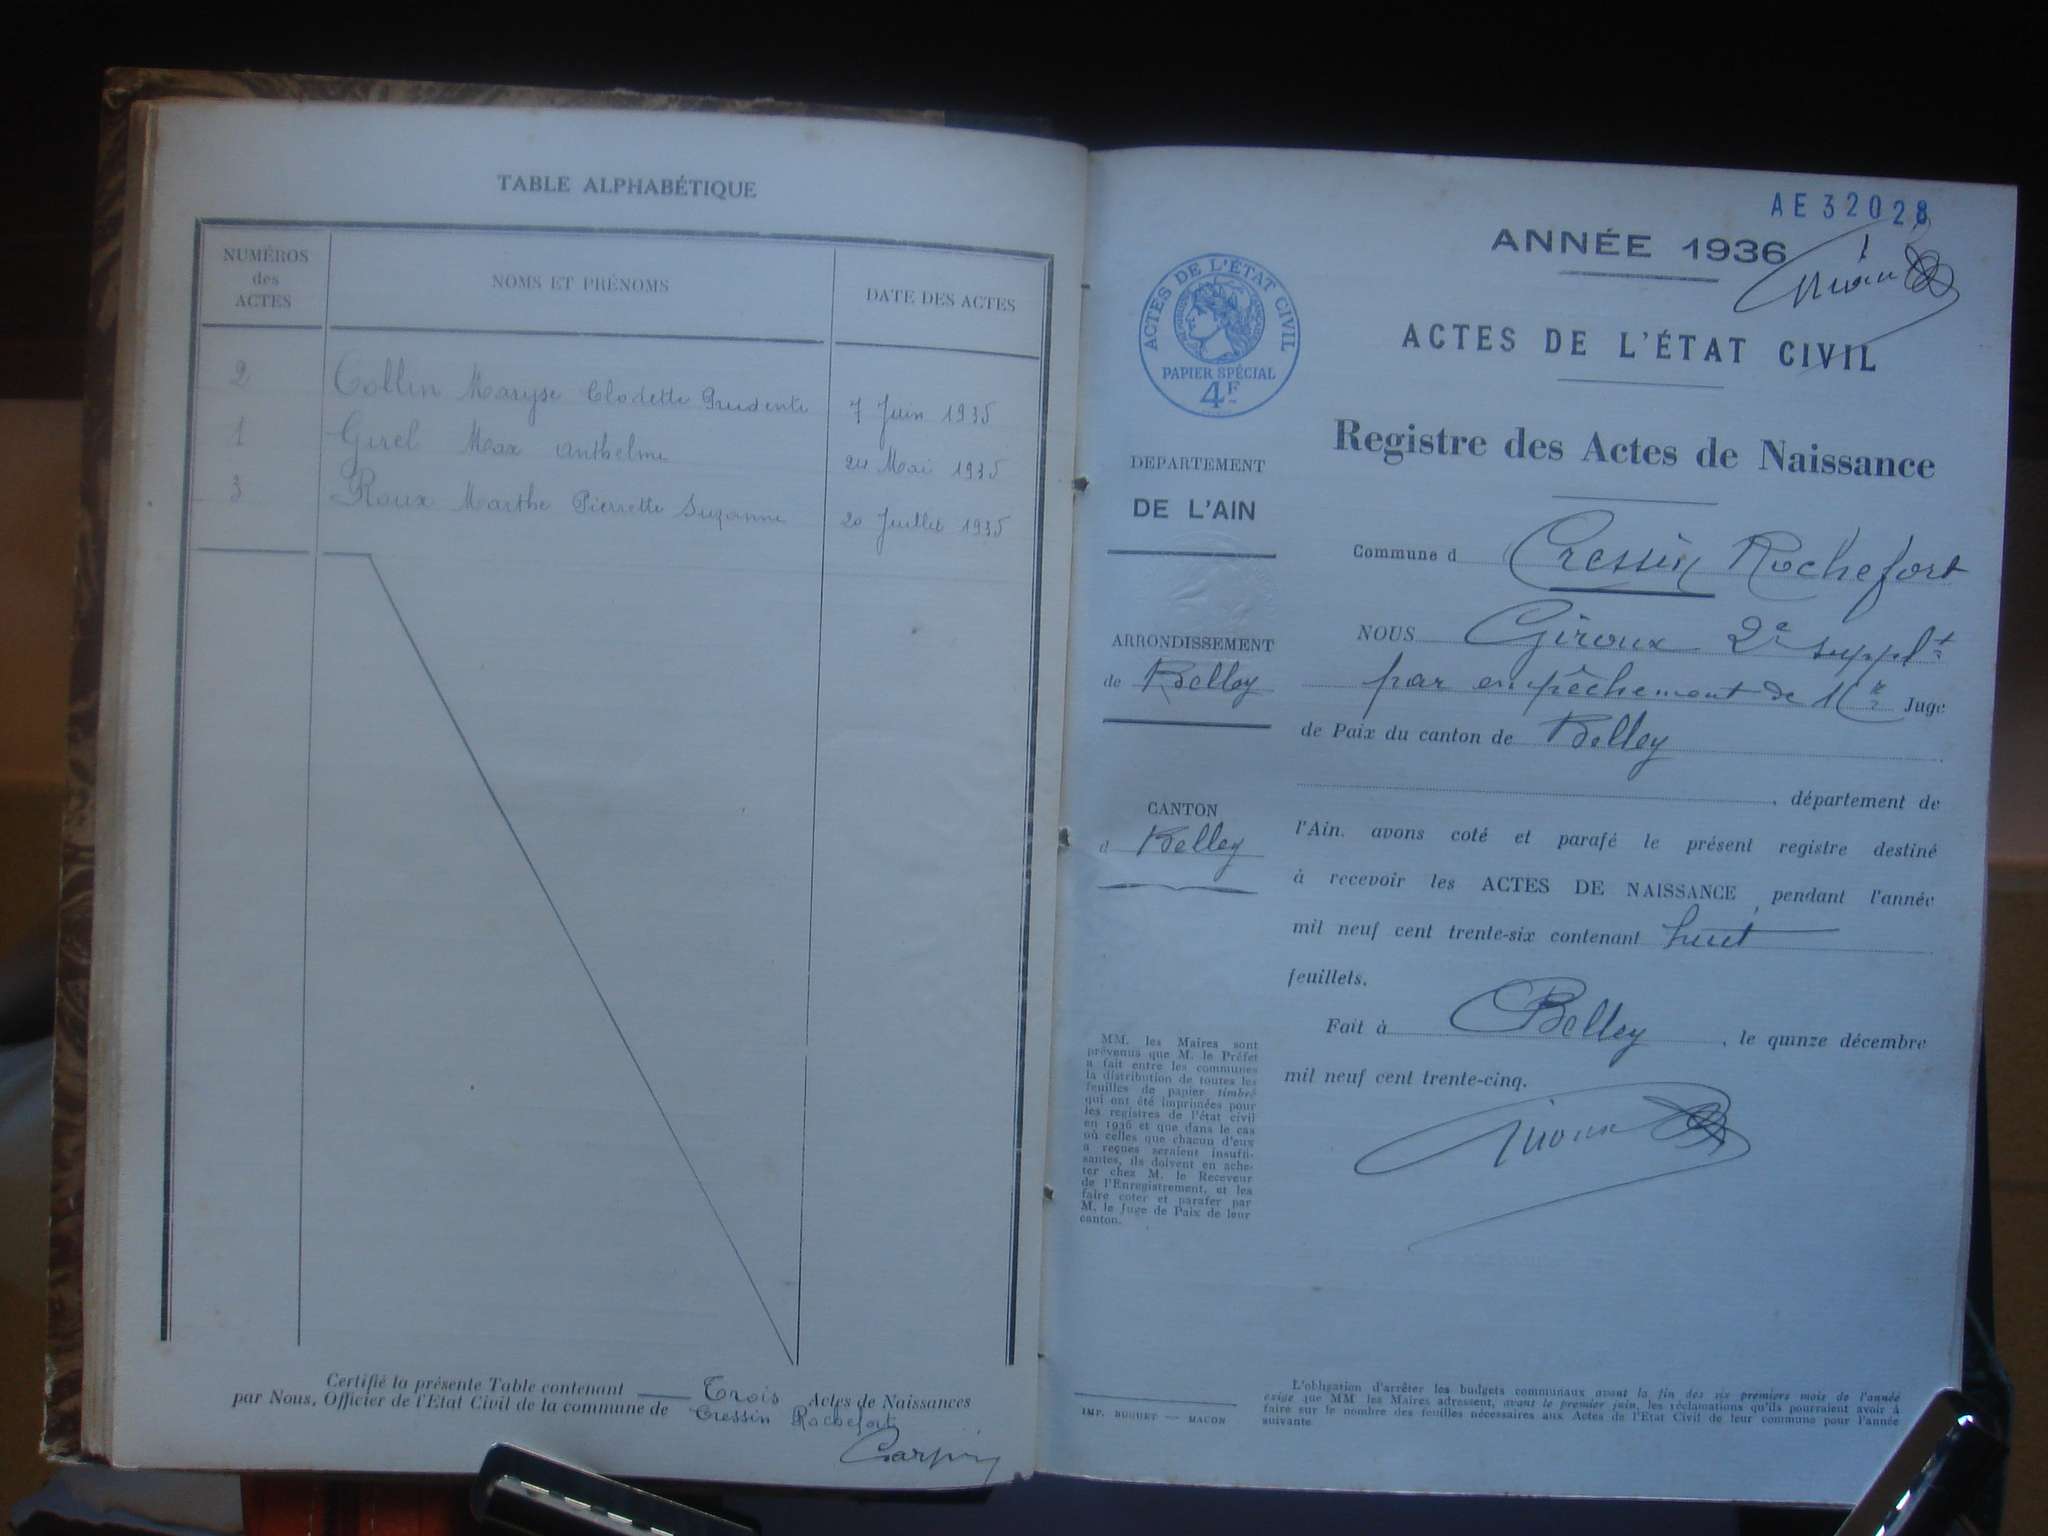 TABLE ALPHABÉTIQUE
NUMÉROS
des
ACTES
NOMS ET PRÉNOMS
DATE DES ACTES
2 Collin Maryse Clodette Prudente 7 Juin 1935
1 Girel Max Anthelme 24 Mai 1935
3 Roux Marthe Pierrette Suzanne 20 Juillet 1935
Certifié la présente Table contenant Trois Actes de Naissances
par Nous, Officier de l'Etat Civil de la commune de Cressin Rochefort
AE32028
ANNÉE 1936
1
Giroux
ACTES DE L'ÉTAT CIVIL
PAPIER SPÉCIAL
4F
ACTES DE L'ÉTAT CIVIL
Registre des Actes de Naissance
DEPARTEMENT
DE L'AIN
ARRONDISSEMENT
de Belley
CANTON
d Belley
Commune d Cressin Rochefort
NOUS Giroux 2e supplt
par empêchement de Juge
de Paix du canton de Belley
, département de
l'Ain. avons coté et parafé le présent registre destiné
à recevoir les ACTES DE NAISSANCE, pendant l'année
mil neuf cent trente-six contenant huit
feuillets.
Fait à Belley, le quinze décembre
mil neuf cent trente-cinq.
Giroux
MM. les Maires sont
prévenus que M. le Préfet
a fait entre les communes
la distribution de toutes les
feuilles de papier timbré
qui ont été imprimées pour
les registres de l'état civil
en 1936 et que dans le cas
où celles que chacun d'eux
a reçues seraient insuffi-
santes, ils doivent en ache-
ter chez M. le Receveur
de l'Enregistrement, et les
faire coter et parafer par
M. le Juge de Paix de leur
canton.
IMP. BUGUET — MACON
L'obligation d'arrêter les budgets communaux avant la fin des six premiers mois de l'année
exige que MM les Maires adressent, avant le premier juin, les réclamations qu'ils pourraient avoir à
faire sur le nombre des feuilles nécessaires aux Actes de l'Etat Civil de leur commune pour l'année
suivante